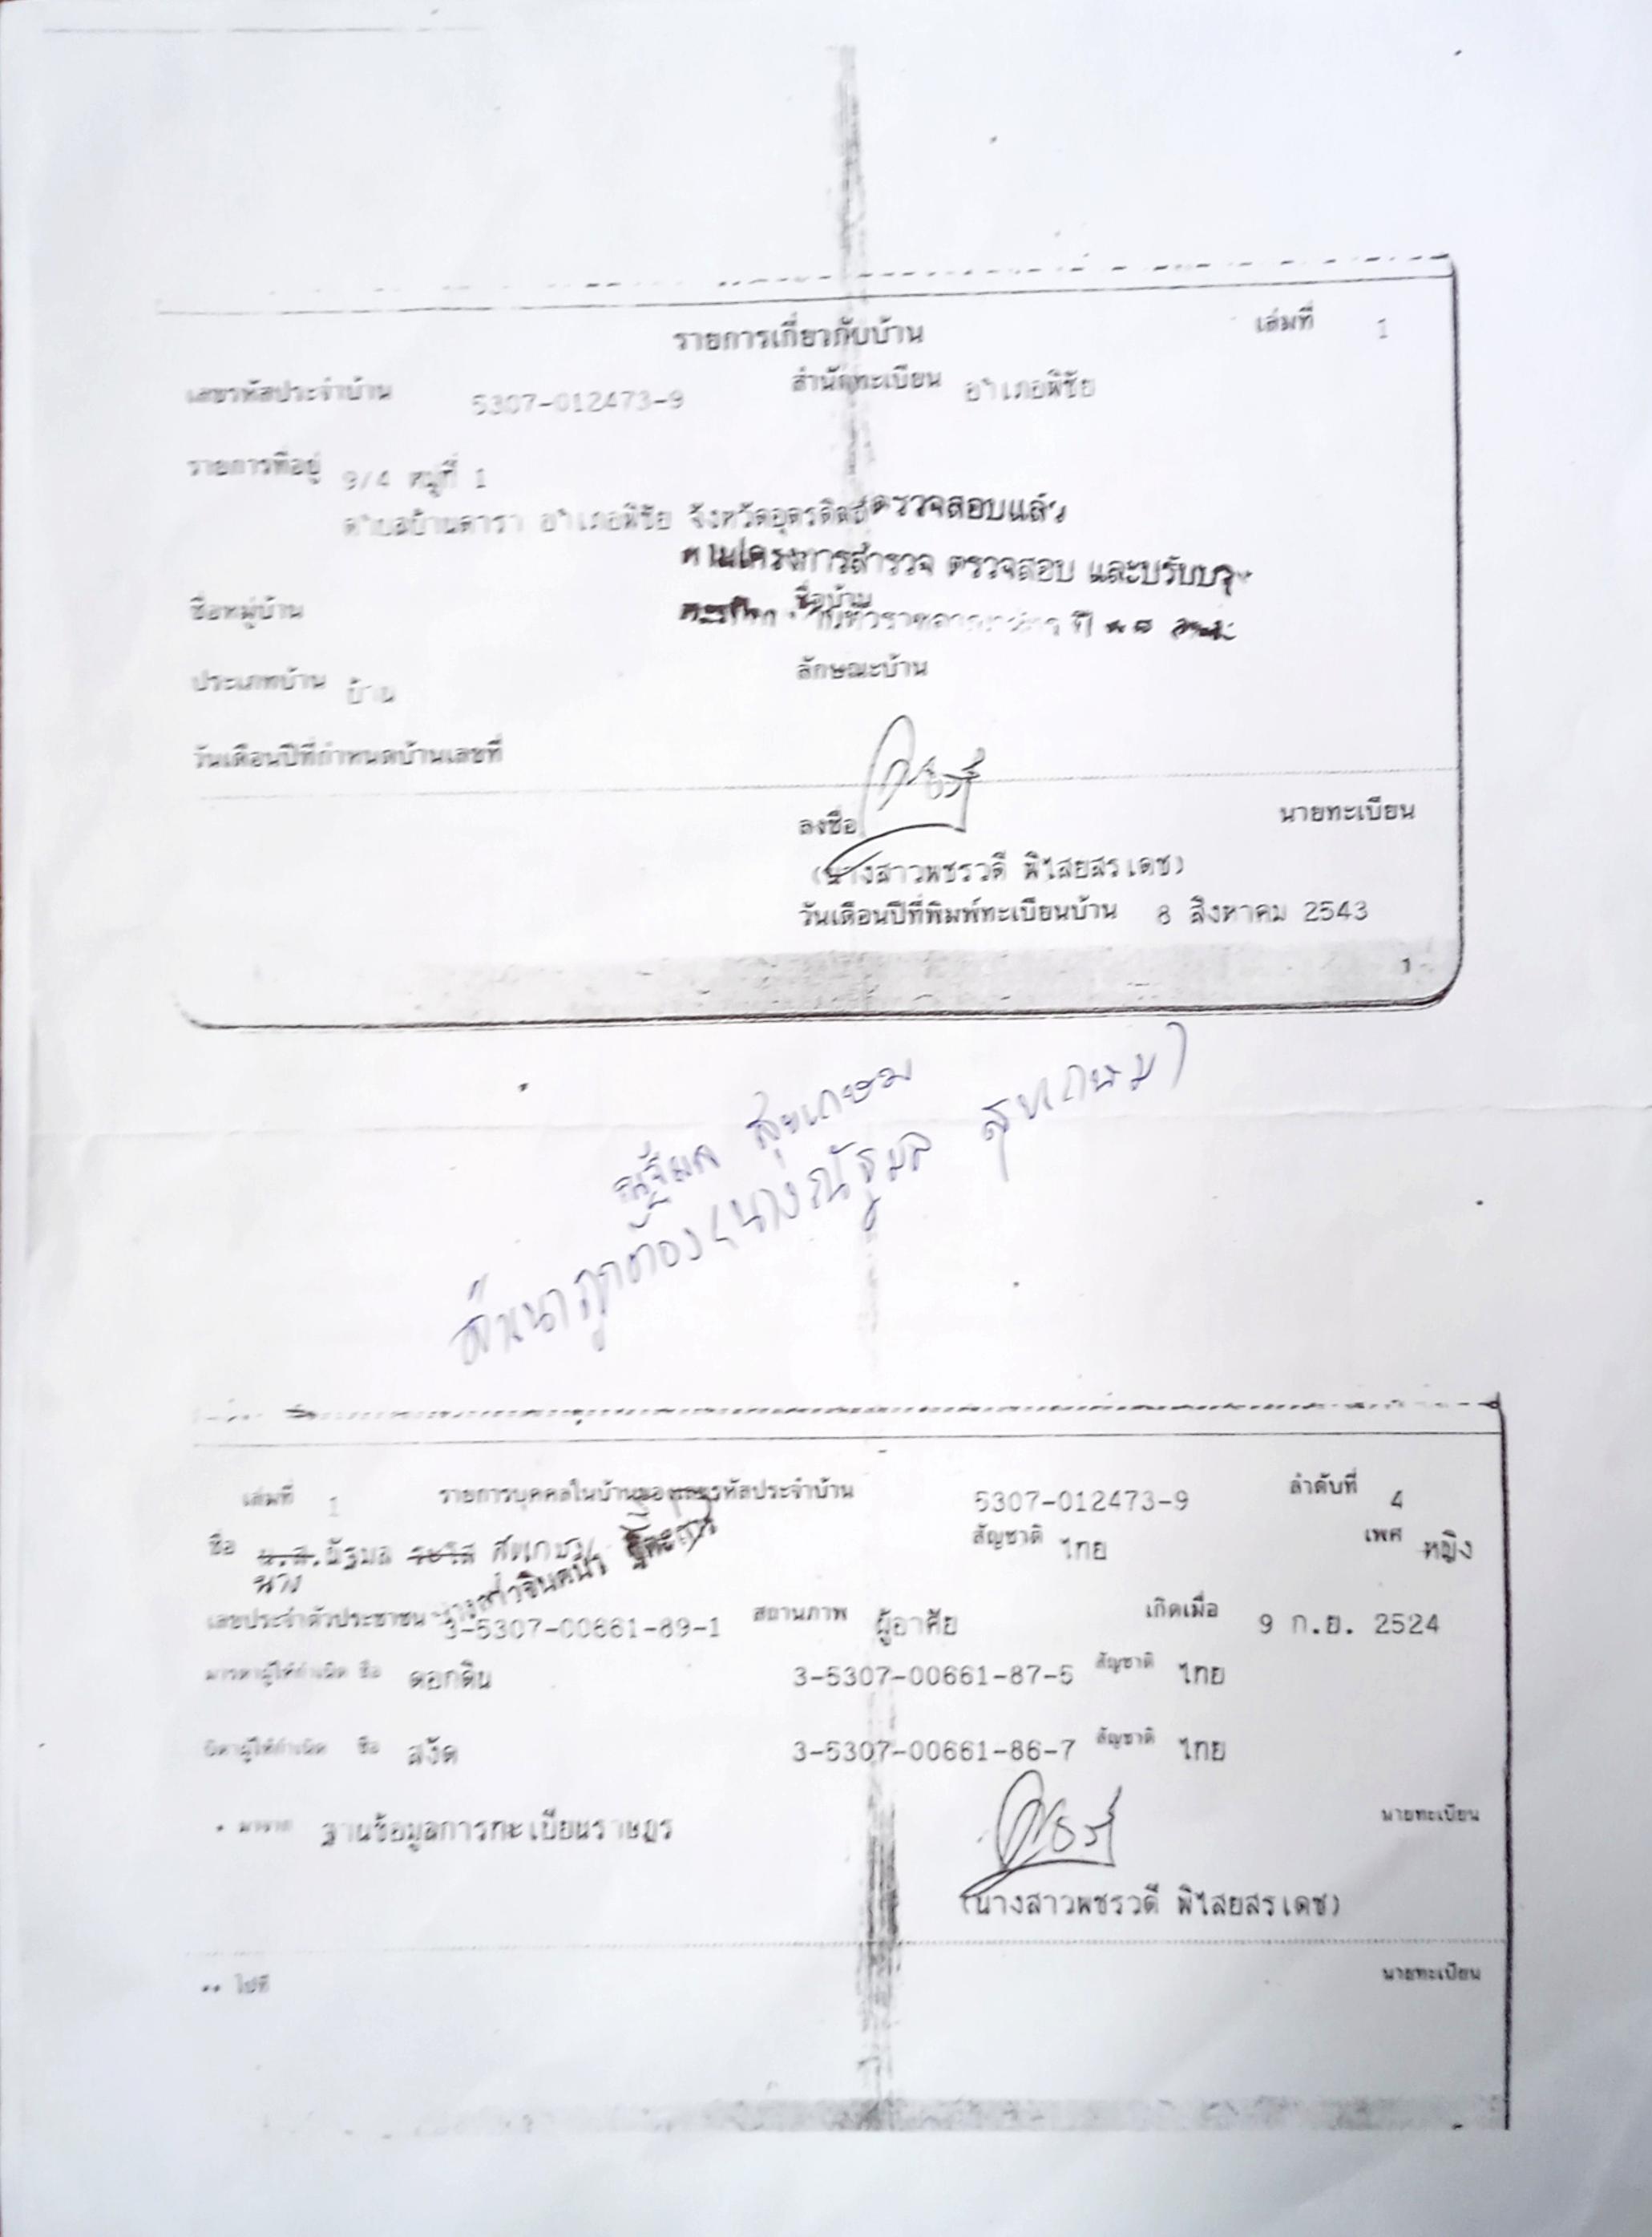 รายการเกี่ยวกับบ้าน เล่มที่ 1
เลขรหัสประจำบ้าน 5307-012473-9 สำนักทะเบียน อำเภอพิชัย
รายการที่อยู่ 9/4 หมู่ที่ 1
ตำบลบ้านดารา อำเภอพิชัย จังหวัดอุตรดิตถ์
ตรวจสอบแล้ว
ตามโครงการสำรวจ ตรวจสอบ และปรับปรุง
ชื่อหมู่บ้าน ชื่อบ้าน
ประเภทบ้าน บ้าน ลักษณะบ้าน
วันเดือนปีที่กำหนดบ้านเลขที่
ลงชื่อ นายทะเบียน
(นางสาวพชรวดี พิไสยสรเดช)
วันเดือนปีที่พิมพ์ทะเบียนบ้าน 8 สิงหาคม 2543
1
ณัฐมล สุขเกษม
สำเนาถูกต้อง (นางณัฐมล สุขเกษม)
เล่มที่ 1 รายการบุคคลในบ้านของเลขรหัสประจำบ้าน 5307-012473-9 ลำดับที่ 4
ชื่อ น.ส.ณัฐมล สุขเกษม สัญชาติ ไทย เพศ หญิง
นาง
เลขประจำตัวประชาชน 3-5307-00661-89-1 สถานภาพ ผู้อาศัย เกิดเมื่อ 9 ก.ย. 2524
มารดาผู้ให้กำเนิด ชื่อ ดอกดิน 3-5307-00661-87-5 สัญชาติ ไทย
บิดาผู้ให้กำเนิด ชื่อ สงัด 3-5307-00661-86-7 สัญชาติ ไทย
* มาจาก ฐานข้อมูลการทะเบียนราษฎร นายทะเบียน
(นางสาวพชรวดี พิไสยสรเดช)
** ไปที่ นายทะเบียน